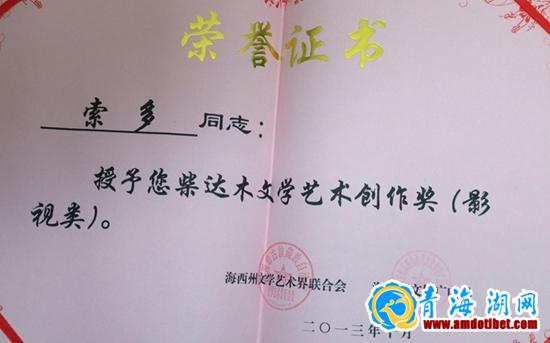 荣誉证书
索多 同志：
授予您柴达木文学艺术创作奖（影
视类）。
海西州文学艺术界联合会
二〇一三年十月
青海湖网
www.amdotibet.com